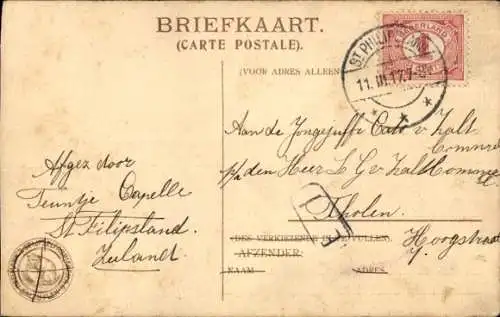 BRIEFKAART.
(CARTE POSTALE).
(VOOR ADRES ALLEEN
ST PHILIPSLAND
11. III. 17. 7-8
NEDERLAND
1
Aan de Jongejuffr Cato v. Zalt-
Commnee
p/a den Heer L G v. Zalt Commnee
Tholen.
Hoogstraat
Afgez door
Teuntje Capelle
St Filipsland.
Zuland.
(DES VERKIEZENDE IN TE VULLEN).
AFZENDER:
NAAM
ADRES.